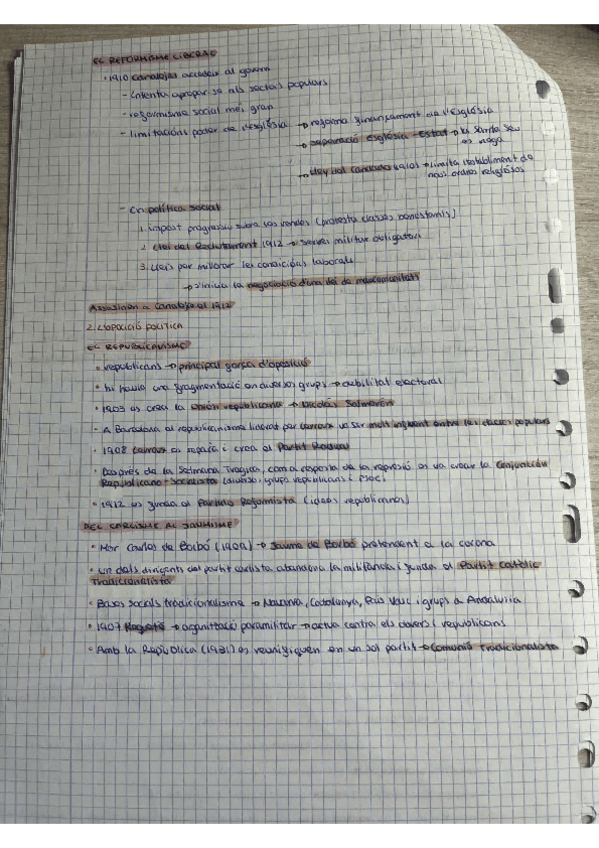 EL REFORMISME LIBERAL
• 1910 Canalejas accedeix al govern
- Intenta apropar-se als sectors populars
- reformisme social més gran
- limitacions poder de l'església → reforma finançament de l'església
→ separació Església-Estat → la Santa Seu es nega
→ Lley del Candado (1910) → limita l'establiment de nous ordres religiosos
- En política social
1. impost progressiu sobre les rendes (protesta classes benestants)
2. Llei del Reclutament 1912 → servei militar obligatori
3. Lleis per millorar les condicions laborals
→ s'inicia la negociació d'una llei de mancomunitats
Assassinen a Canalejas al 1912
2. L'OPOSICIÓ POLÍTICA
EL REPUBLICANISME
• republicans → principal força d'oposició
• hi havia una fragmentació en diversos grups → debilitat electoral
• 1903 es crea la Unión republicana → Nicolás Salmerón
- A Barcelona el republicanisme liderat por Lerroux va ser molt influent entre les classes populars
• 1908 Lerroux es separa i crea el Partit Radical
• Després de la Setmana Tràgica, com a resposta de la repressió es va crear la Conjunción
Republicano-Socialista (diversos grups republicans i PSOE)
• 1912 es funda el Partido Reformista (idees republicanes)
DEL CARLISME AL JAUMISME
• Mor Carlos de Borbó (1909) → Jaume de Borbó pretendent a la corona
• Un dels dirigents del partit carlista abandona la militància i funda el Partit Catòlic
Tradicionalista
• Bases socials tradicionalisme → Navarra, Catalunya, País Vasc i grups a Andalusia
• 1907 Requeté → organització paramilitar → actua contra els obrers i republicans
• Amb la República (1931) es reunifiquen en un sol partit → Comunió Tradicionalista